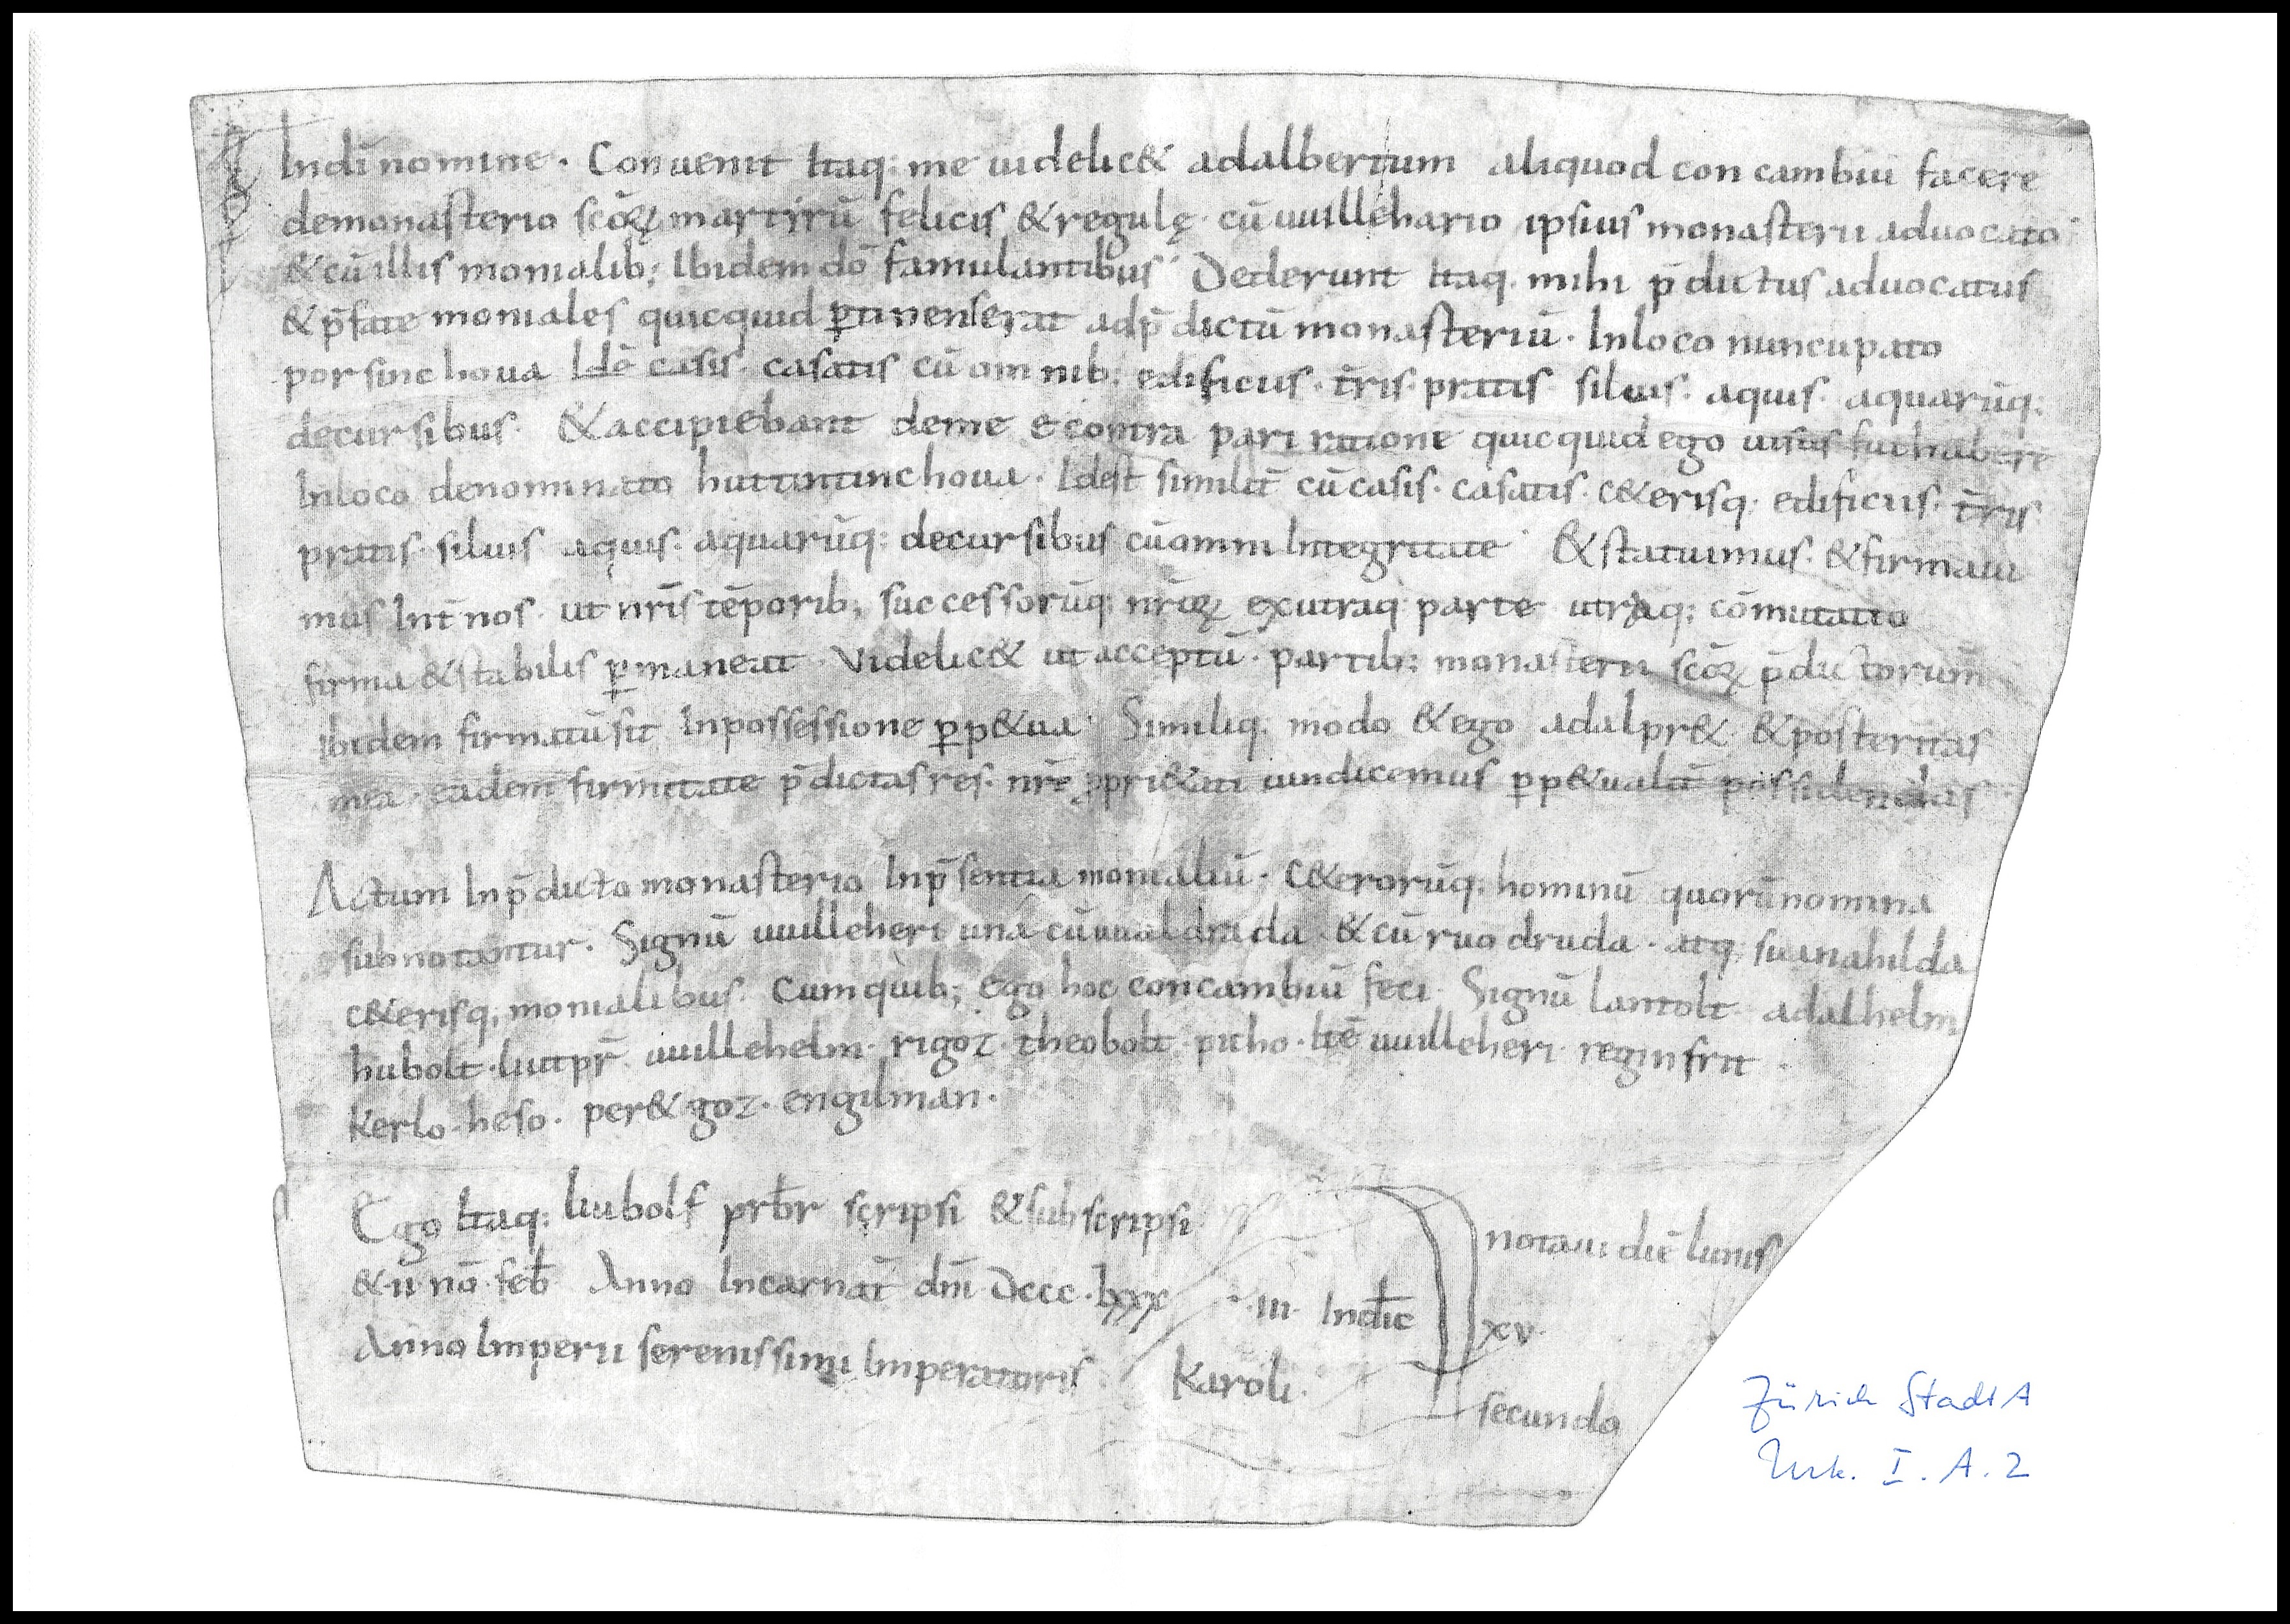 Indī nomine · Convenit Itaq; me videlic& adalbertum aliquod concambiū facere
demonasterio scōꝝ martirū felicis & regulę · cū uuillehario ipsius monasterii aduocato
& cū illis monialib; Ibidem dō famulantibus · Dederunt Itaq. mihi p̄dictus aduocatus
& p̄fate moniales quicquid ꝑtinens erat ad p̄dictū monasteriū · Inloco nuncupato
porsinchoua Idē casis · casatis cū omnib; edificiis · t̄ris · pratis siluis · aquis · aquarūq;
decursibus · & accipiebant deme econtra pari ratione quicquid ego uisus fui habere
Inloco denominato huttintinchoua · Idest similit̄ cū casis · casatis · c&erisq; edificiis · t̄ris
pratis · siluis aquis · aquarūq; decursibus cū omni Integritate · & statuimus · & firmaui
mus Int̄ nos · ut nr̄is tēporib; successorūq; nr̄oꝝ exutraq; parte utraq; cōmutatio
firma & stabilis ꝑmaneat · Videlic& ut acceptū · partib; monasterii scōꝝ p̄dictorum
ibidem firmatū sit Inpossessione ꝑp&ua · Similiq; modo & ego adalpr& & posteritas
mea · eadem firmitate p̄dictas res · nr̄e ꝓpri&ati uindicemus ꝑp&ualit̄ possidendas ·
Actum Inp̄dicto monasterio Inp̄sentia monialiū · c&erorūq; hominū quorū nomina
subnotantur · Signū uuilleheri una cū uualdrada & cū ruodruda · atq; suanahilda
c&erisq; monialibus · Cum quib; ego hoc concambiū feci · Signū lantolt · adalhelm
hubolt · liutpr̄ · uuillehelm · rigoz · theobolt · pitho · Itē uuilleheri · reginfrit ·
Kerlo · heso · per&goz · engilman ·
Ego Itaq; liubolf prb̄r scripsi & subscripsi notaui diē lunis
& · ii · nō · feb̄ Anno Incarnat̄ dn̄i · Dccc · lxxx · iii · Indic̄ xv ·
Anno Imperii serenissimi Imperatoris Karoli · secundo
Zürich StadtA
Urk. I. A. 2